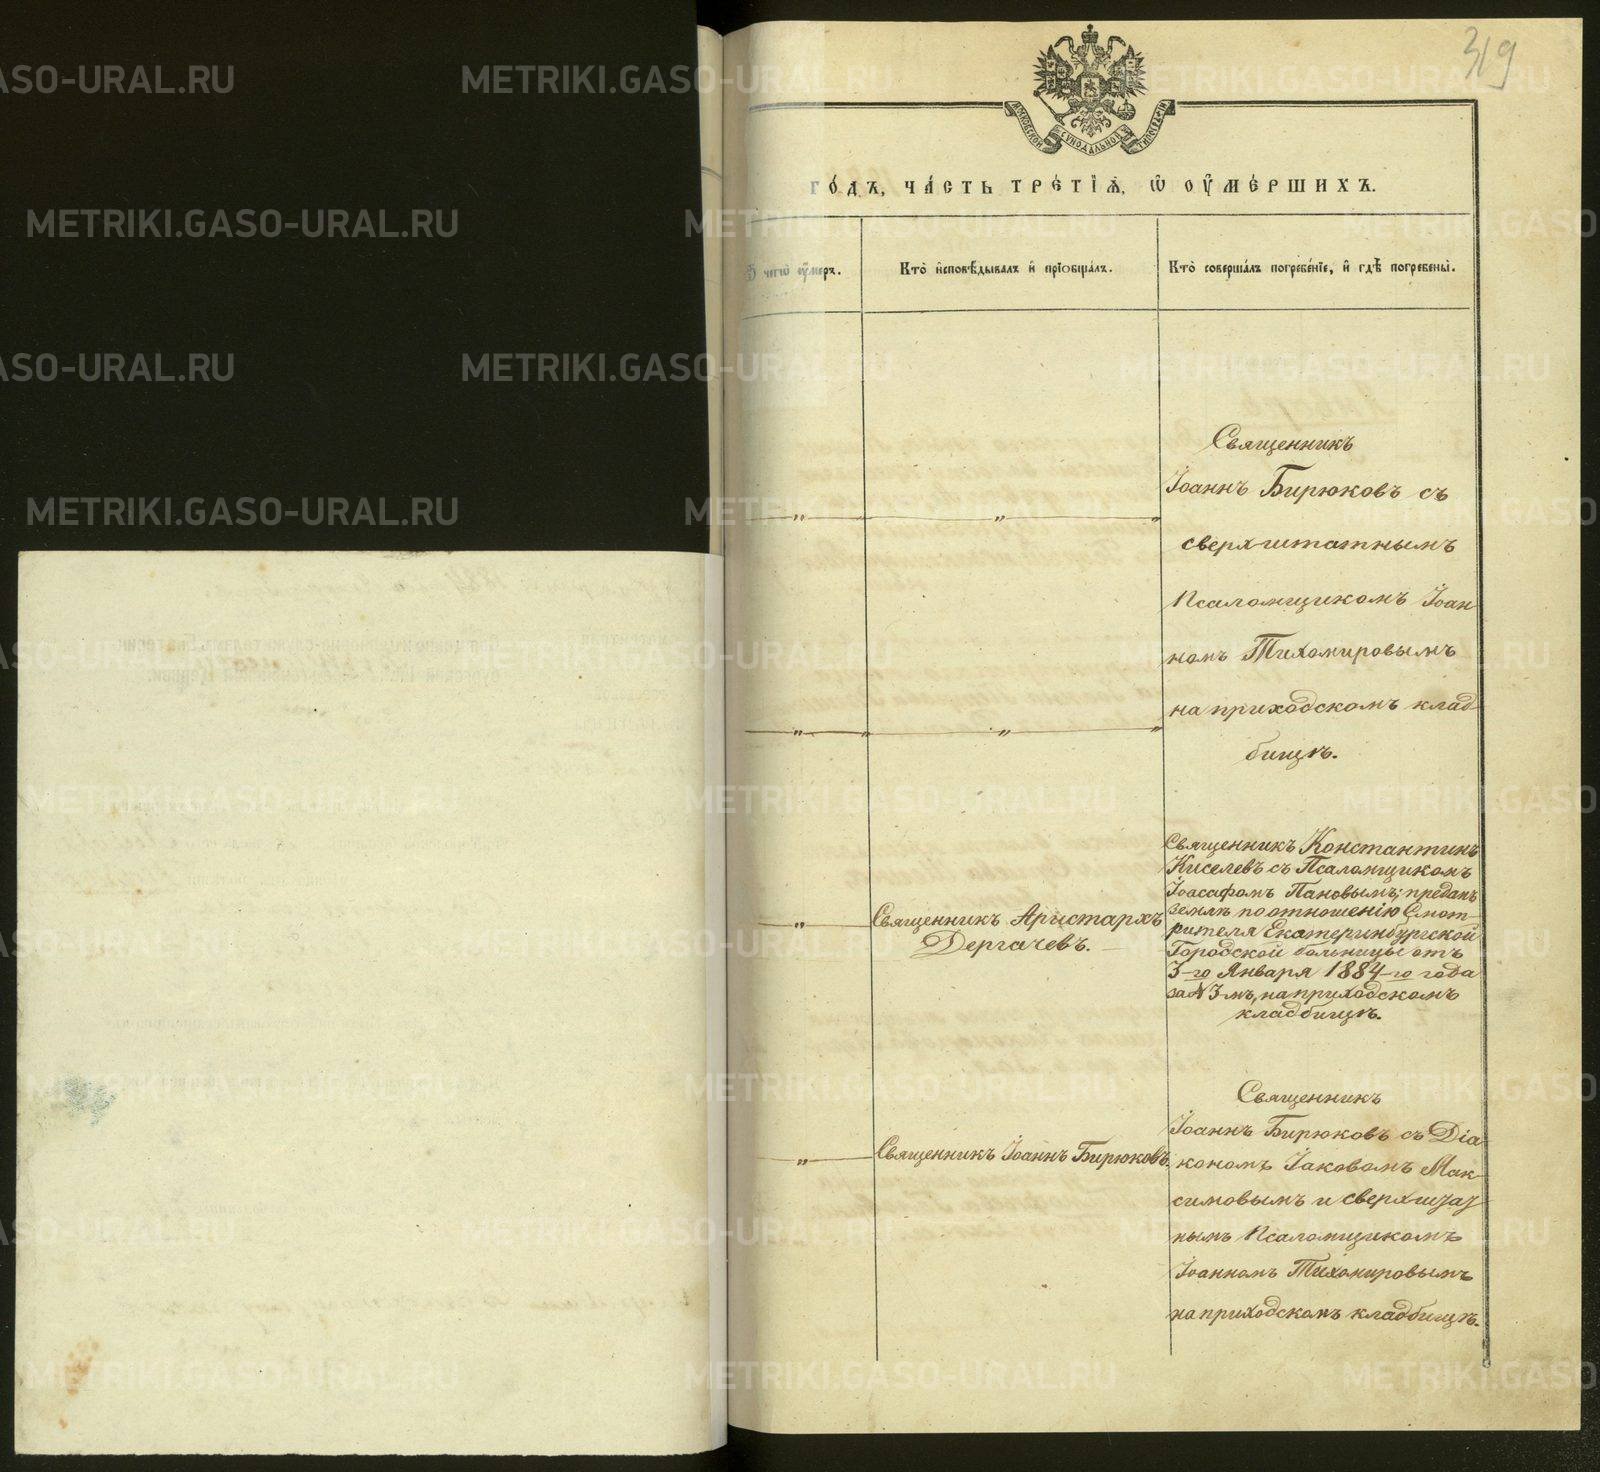 319
МОСКОВСКОЙ СѴНОДАЛЬНОЙ ТИПОГРАФІИ
го́дъ, ча́сть тре́тїѧ, ѡ оу҆ме́ршихъ.
чегѡ̀ оу҆́меръ.
Кто̀ и҆сповѣ́дывалъ и҆ прїѡбща́лъ.
Кто̀ соверша́лъ погребе́нїе, и҆ гдѣ̀ погребены̀.
Священникъ
Іоаннъ Бирюковъ съ
сверхштатнымъ
Псаломщикомъ Іоан-
номъ Тихомировымъ
на приходскомъ клад-
бищѣ.
"
"
"
"
"
"
"
"
Священникъ Аристархъ
Дергачевъ.
Священникъ Константинъ
Киселевъ съ Псаломщикомъ
Іоасафомъ Пановымъ; преданъ
землѣ по отношенію Смот-
рителя Екатеринбургской
Городской больницы отъ
3-го Января 1884-го года
за № 3-мъ, на приходскомъ
кладбищѣ.
"
Священникъ Іоаннъ Бирюковъ.
Священникъ
Іоаннъ Бирюковъ съ Діа-
кономъ Іаковомъ Мак-
симовымъ и сверхштат
нымъ Псаломщикомъ
Іоанномъ Тихомировымъ
на приходскомъ кладбищѣ.
METRIKI.GASO-URAL.RU